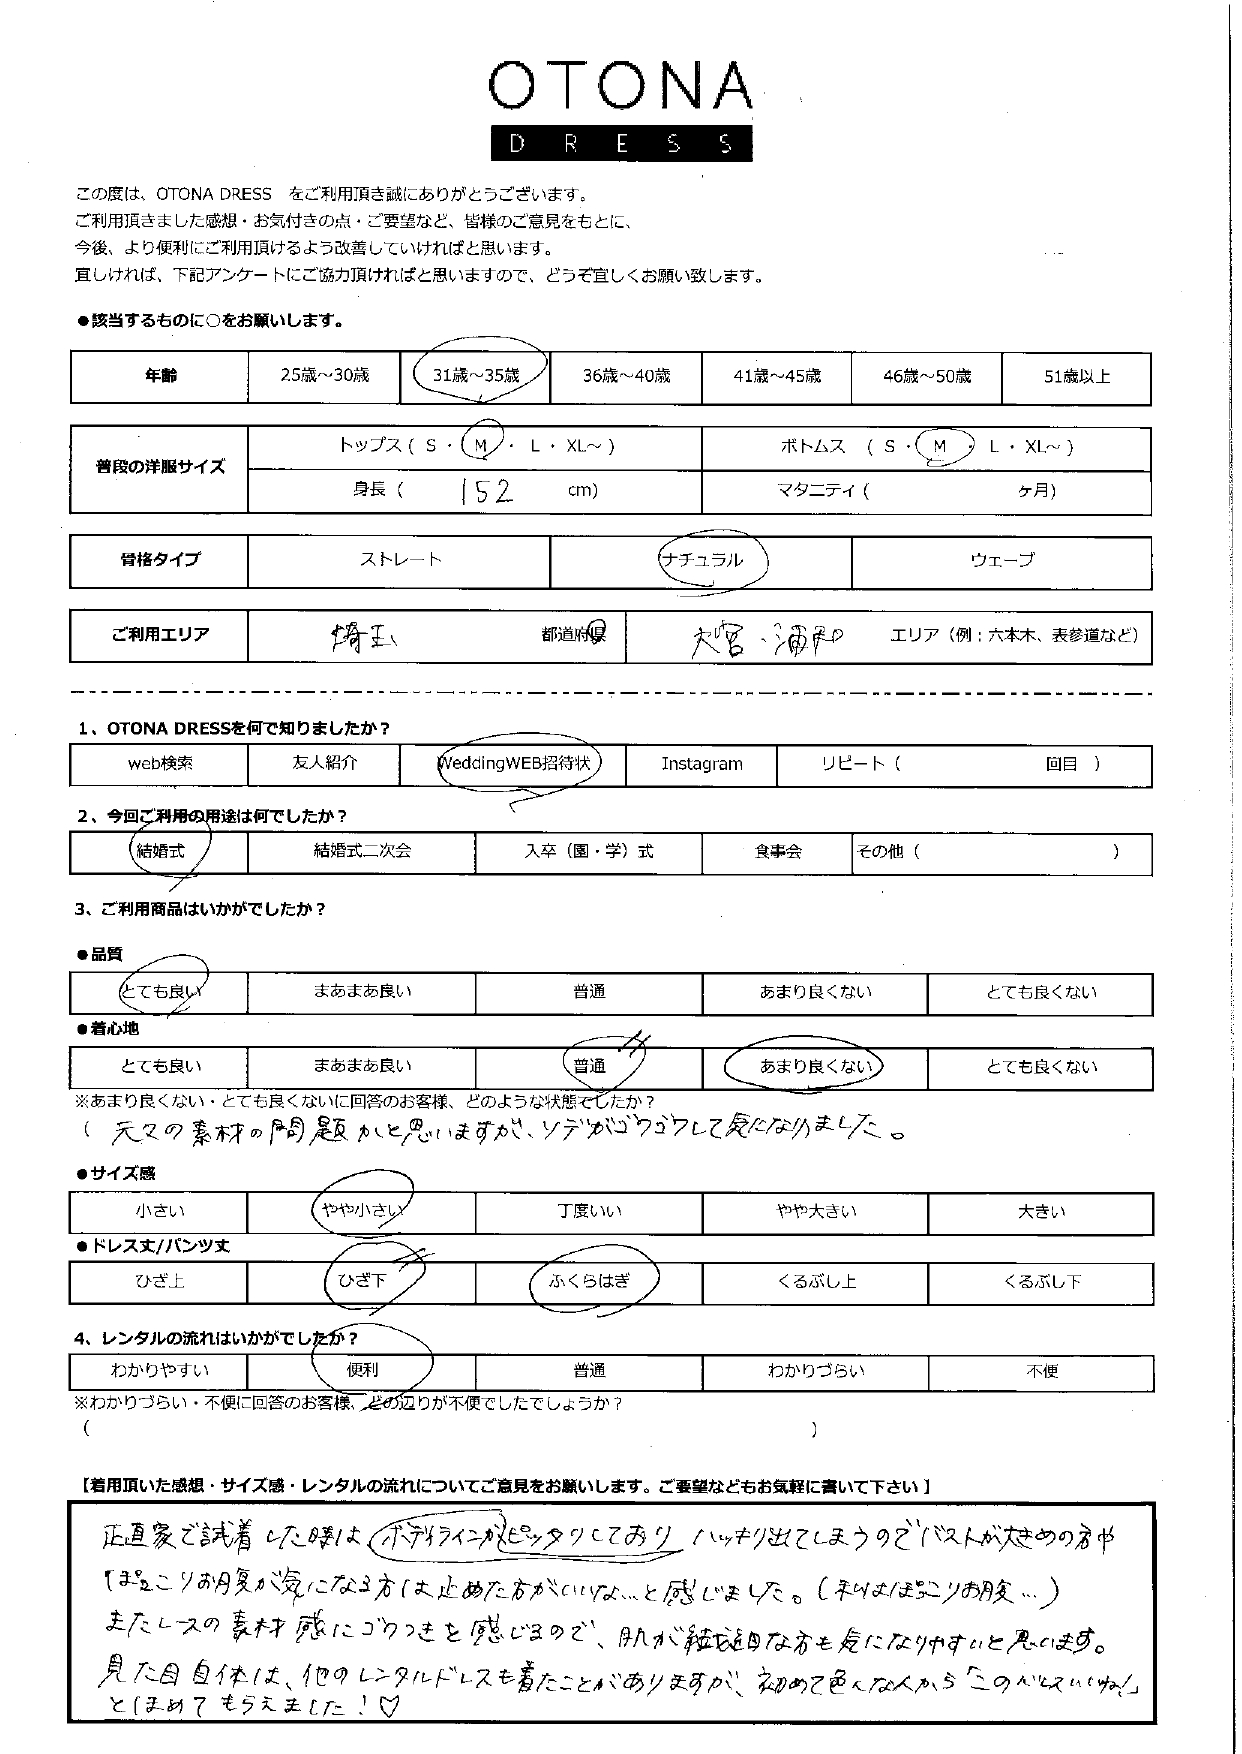 OTONA
DRESS
この度は、OTONA DRESS をご利用頂き誠にありがとうございます。
ご利用頂きました感想・お気付きの点・ご要望など、皆様のご意見をもとに、
今後、より便利にご利用頂けるよう改善していければと思います。
宜しければ、下記アンケートにご協力頂ければと思いますので、どうぞ宜しくお願い致します。
●該当するものに○をお願いします。
年齢 25歳～30歳 31歳～35歳 36歳～40歳 41歳～45歳 46歳～50歳 51歳以上
普段の洋服サイズ トップス ( S ・ M ・ L ・ XL～ ) ボトムス ( S ・ M ・ L ・ XL～ )
身長 ( 152 cm) マタニティ ( ヶ月)
骨格タイプ ストレート ナチュラル ウェーブ
ご利用エリア 埼玉 都道府県 大宮・浦和 エリア（例：六本木、表参道など）
1、OTONA DRESSを何で知りましたか？
web検索 友人紹介 WeddingWEB招待状 Instagram リピート ( 回目 )
2、今回ご利用の用途は何でしたか？
結婚式 結婚式二次会 入卒（園・学）式 食事会 その他 ( )
3、ご利用商品はいかがでしたか？
●品質
とても良い まあまあ良い 普通 あまり良くない とても良くない
●着心地
とても良い まあまあ良い 普通 あまり良くない とても良くない
※あまり良くない・とても良くないに回答のお客様、どのような状態でしたか？
( 元々の素材の問題かと思いますが、ソデがゴワゴワして気になりました。
●サイズ感
小さい やや小さい 丁度いい やや大きい 大きい
●ドレス丈/パンツ丈
ひざ上 ひざ下 ふくらはぎ くるぶし上 くるぶし下
4、レンタルの流れはいかがでしたか？
わかりやすい 便利 普通 わかりづらい 不便
※わかりづらい・不便に回答のお客様、どの辺りが不便でしたでしょうか？
( )
【着用頂いた感想・サイズ感・レンタルの流れについてご意見をお願いします。ご要望などもお気軽に書いて下さい】
正直家で試着した時はボディラインがピッタリしており ハッキリ出てしまうのでバストが大きめの方や
ぽっこりお腹が気になる方は止めた方がいいな…と感じました。(私はぽっこりお腹…)
またレースの素材感にゴワつきを感じるので、肌が繊細な方も気になりやすいと思います。
見た目自体は、他のレンタルドレスも着たことがありますが、初めて色んな人から「このドレスいいね!」
とほめてもらえました！♡